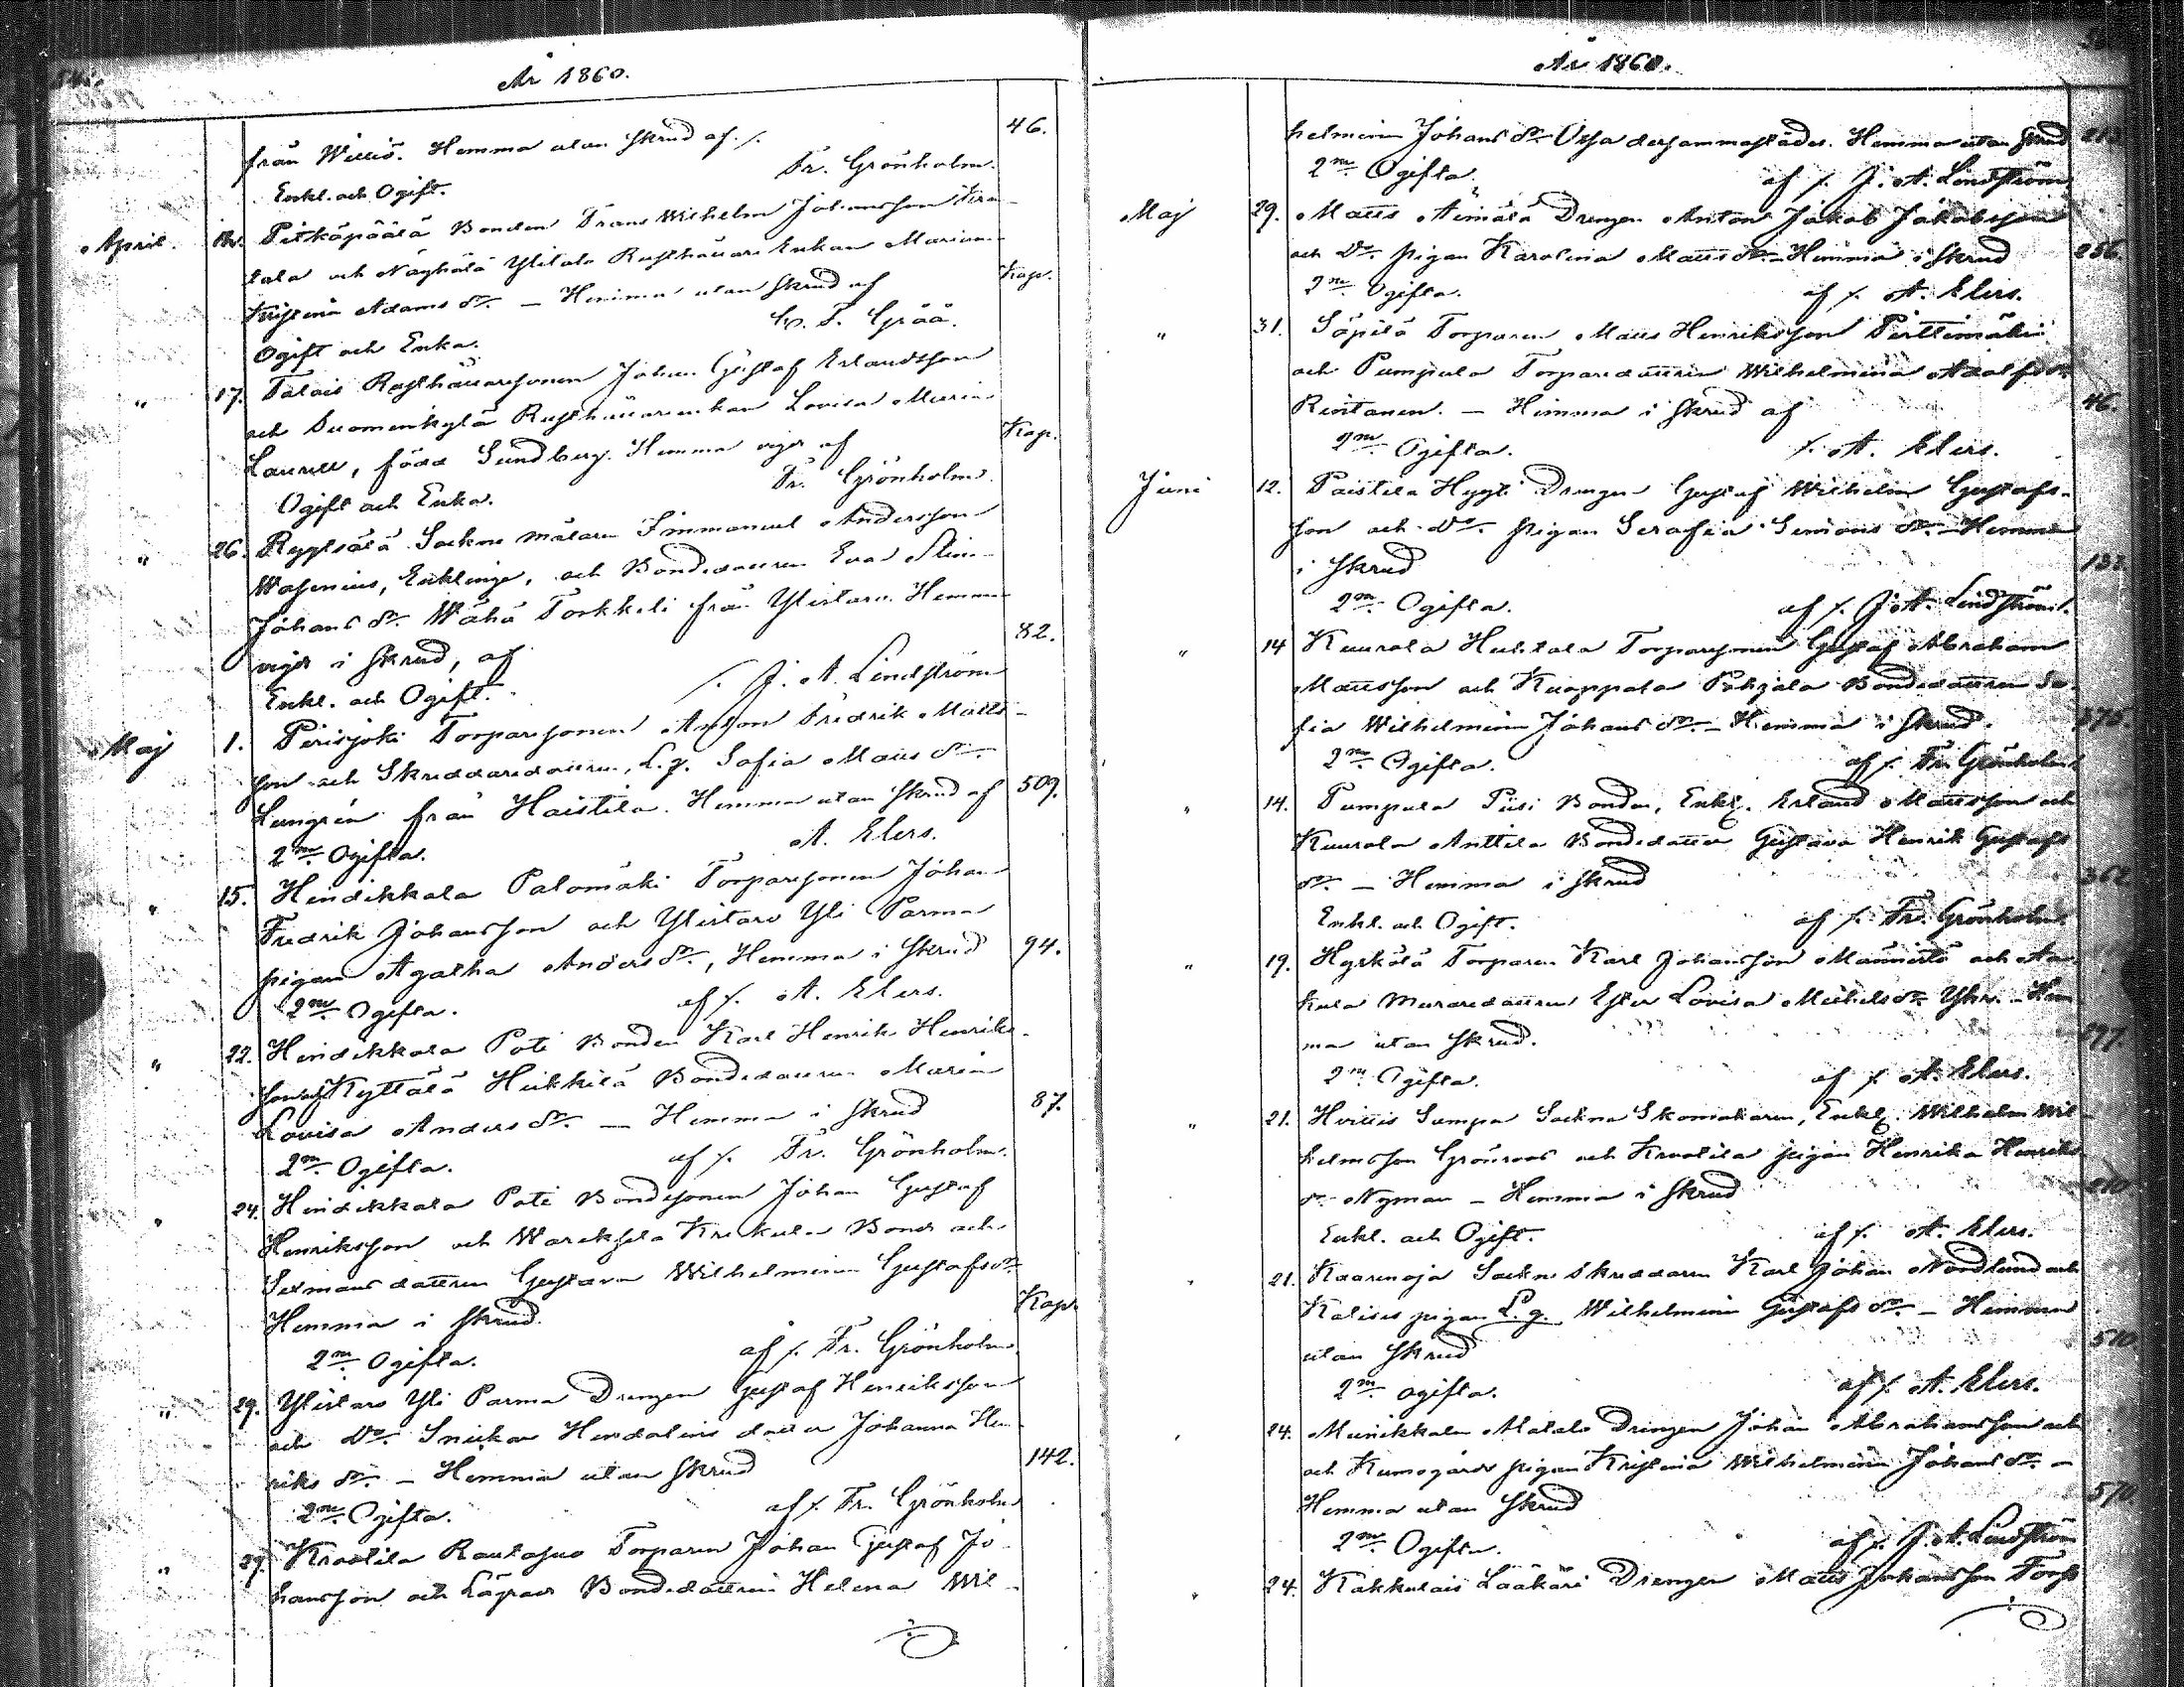 År 1860.
från Williö. Hemma utan skrud af /. 46.
Enkl. och Ogift. Fr. Grönholm.
April. Pitkäpäälä Bonden Frans Wilhelm Johansson
tala och Näyhälä Ylitalo Rusthållare Enkan Maria
Kristina Adams dr. — Hemma utan skrud af Kap.
Ogift och Enka. G. F. Grää.
" 17. Talois Rusthållaresonen Johan Gustaf Erlandsson
och Suomenkylä Rusthållareenkan Lovisa Maria
Laurell, född Sundberg. Hemma vigde af Kap.
Ogift och Enka. Fr. Grönholm.
" 26. Ryytsälä Sockne målaren Immanuel Andersson
Wasenius, Enkling, och Bondedottren Eva Stina
Johans dr. Wähä Torkkeli från Ylistaro. Hemma
vigde i skrud, af 82.
Enkl. och Ogift. /. J. A. Lindström
Maj 1. Peisjoki Torparesonen Anton Fredrik Matts-
son och Skreddaredottren, L.q. Sofia Matts dr.
Lungrén från Haistila. Hemma utan skrud af 509.
2ne Ogifta. A. Elers.
" 15. Hendikkala Palomäki Torparesonen Johan
Fredrik Johansson och Ylistaro Yli Parma
pigan Agatha Anders dr., Hemma i skrud 94.
2ne Ogifta. af /. A. Elers.
" 22. Hendikkala Poti Bonden Karl Henrik Henriks-
son och Kyttälä Heikkilä Bondedottren Maria
Lovisa Anders dr. — Hemma i skrud 87.
2ne Ogifta. af /. Fr. Grönholm.
" 24. Hendikkala Poti Bondesonen Johan Gustaf
Henriksson och Wareksela Krekula Bonde och
Sexmansdottren Gustava Wilhelmina Gustafs dr.
Hemma i skrud. Kap.
2ne Ogifta. af /. Fr. Grönholm.
" 29. Ylistaro Yli Parma Drengen Gustaf Henriksson
och do. Snickar Hendolins dotter Johanna Hen-
riks dr. — Hemma utan skrud 142.
2ne Ogifta. af /. Fr. Grönholm
" 29. Krootila Rautasuo Torparen Johan Gustaf Jo-
hansson och Bondedottren Helena Wil-
År 1860.
helmina Johans dr. dersammastädes. Hemma utan skrud 213
2ne Ogifta. af /. J. A. Lindström
Maj 29. Matts Äimälä Drengen Anton Jakob Jakobsson
och do. pigan Karolina Matts dr. — Hemma i skrud 256.
2ne Ogifta. af /. A. Elers.
" 31. Säpilä Torparen Matts Henriksson Perttimäki
och Pumpula Torparedottren Wilhelmina Adolfs dr.
Rintanen. — Hemma i skrud af 46.
2ne Ogifta. /. A. Elers.
Juni 12. Paistila Hygti Drengen Gustaf Wilhelm Gustafs-
son och do. pigan Serafia Simons dr. — Hemma
i skrud
2ne Ogifta. af /. J. A. Lindström.
" 14 Kuurola Huhtala Torparesonen Gustaf Abraham
Mattsson och Kuoppala Pohjala Bondedottren So-
fia Wilhelmina Johans dr. — Hemma i skrud. 375.
2ne Ogifta. af /. Fr. Grönholm.
" 14. Pumpula Piisi Bonden, Enkl. Erland Mattsson och
Kuurola Anttila Bondedotter Gustava Henrik Gustafs
dr. — Hemma i skrud 362
Enkl. och Ogift. af /. Fr. Grönholm.
" 19. Hyrkölä Torparen Karl Johansson Männistö och
kula Muraredottren Ester Lovisa Michels dr. — Hem
ma utan skrud.
2ne Ogifta. af /. A. Elers.
" 21. Hvittis Sumpa Sockne Skomakaren, Enkl. Wilhelm Wil-
helmsson Grönroos och Krootila pigan Henrika Henriks
dr. Nyman — Hemma i skrud 210
Enkl. och Ogift. af /. A. Elers.
" 21. Kaarenoja Sockne skreddaren Karl Johan Nordlund och
pigan L.q. Wilhelmina Gustafs dr. — Hemma
utan skrud 510.
2ne ogifta. af /. A. Elers.
" 24. Munikkala Matalo Drengen Johan Abrahamsson och
och Kumogårds pigan Kristina Wilhelmina Johans dr. —
Hemma utan skrud 570.
2ne Ogifta. af /. J. A. Lindström
" 24. Kakkulais Lääkäri Drengen Matts Johansson